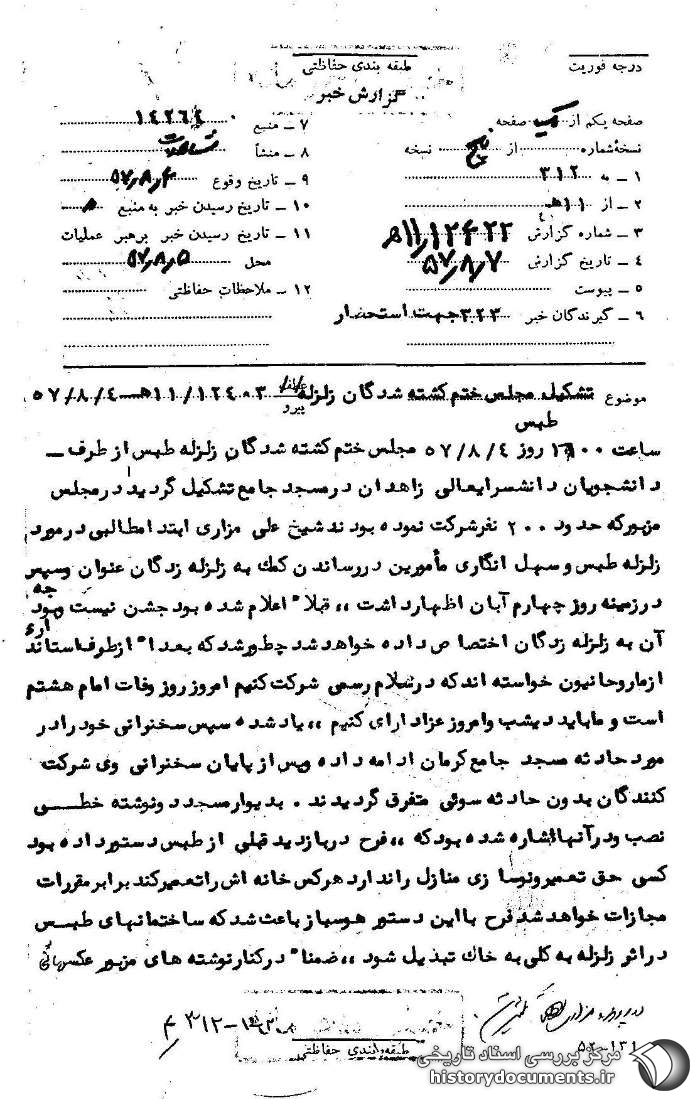 درجه فوریت
طبقه بندی حفاظتی
گزارش خبر
صفحه یکم از یک صفحه
نسخهٔ شماره از پنج نسخه
۱ ــ به ۳۱۲
۲ ــ از ۱۱ هـ
۳ ــ شماره گزارش ۱۱/۱۲۴۲۲ هـ
۴ ــ تاریخ گزارش ۵۷٫۸٫۷
۵ ــ پیوست
۶ ــ گیرندگان خبر ۳۲۳ جهت استحضار
۷ ــ منبع ۱۴۲۶۴
۸ ــ منشأ
۹ ــ تاریخ وقوع ۵۷٫۸٫۴
۱۰ ــ تاریخ رسیدن خبر به منبع
۱۱ ــ تاریخ رسیدن خبر برهبر عملیات
محل ۵۷٫۸٫۵
۱۲ ــ ملاحظات حفاظتی
موضوع تشکیل مجلس ختم کشته شدگان زلزله طبس پیرو ۱۲۴۰۳/۱۱هـ ــ ۵۷/۸/۴
ساعت ۱۶۰۰ روز ۵۷/۸/۴ مجلس ختم کشته شدگان زلزله طبس از طرف ــ
دانشجویان دانشسرایعالی زاهدان در مسجد جامع تشکیل گردید در مجلس
مزبور که حدود ۲۰۰ نفر شرکت نموده بودند شیخ علی مزاری ابتدا مطالبی در مورد
زلزله طبس و سهل انگاری مأمورین در رساندن کمک به زلزله زدگان عنوان و سپس
در زمینه روز چهارم آبان اظهار داشت ،، قبلاً اعلام شده بود جشن نیست و بودجه
آن به زلزله زدگان اختصاص داده خواهد شد چطور شد که بعداً از طرف استانداری
از ما روحانیون خواسته اند که در سلام رسمی شرکت کنیم امروز روز وفات امام هشتم
است و ما باید دیشب و امروز عزاداری کنیم ،، یاد شده سپس سخنرانی خود را در
مورد حادثه مسجد جامع کرمان ادامه داده و پس از پایان سخنرانی وی شرکت
کنندگان بدون حادثه سوئی متفرق گردیدند . بدیوار مسجد دو نوشته خطــی
نصب و در آنها اشاره شده بود که ،، فرح در بازدید قبلی از طبس دستور داده بود
کسی حق تعمیر و نوسازی منازل را ندارد هر کس خانه اش را تعمیر کند برابر مقررات
مجازات خواهد شد فرح با این دستور هوسباز باعث شد که ساختمانهای طبس
در اثر زلزله به کلی به خاک تبدیل شود ،، ضمناً در کنار نوشته های مزبور عکسهائی
در پرونده مزاری
۵۲-۱۳۱
۳۱۲
طبقه بندی حفاظتی
مرکز بررسی اسناد تاریخی
historydocuments.ir